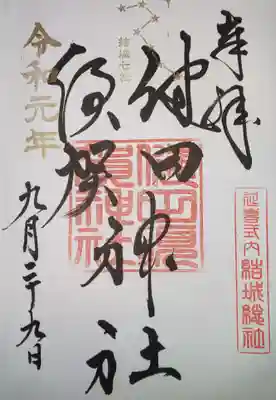 奉拝
延喜式内 結城総社
健田神社
結城七社
須賀神社
健田須賀神社
令和元年
九月二十九日